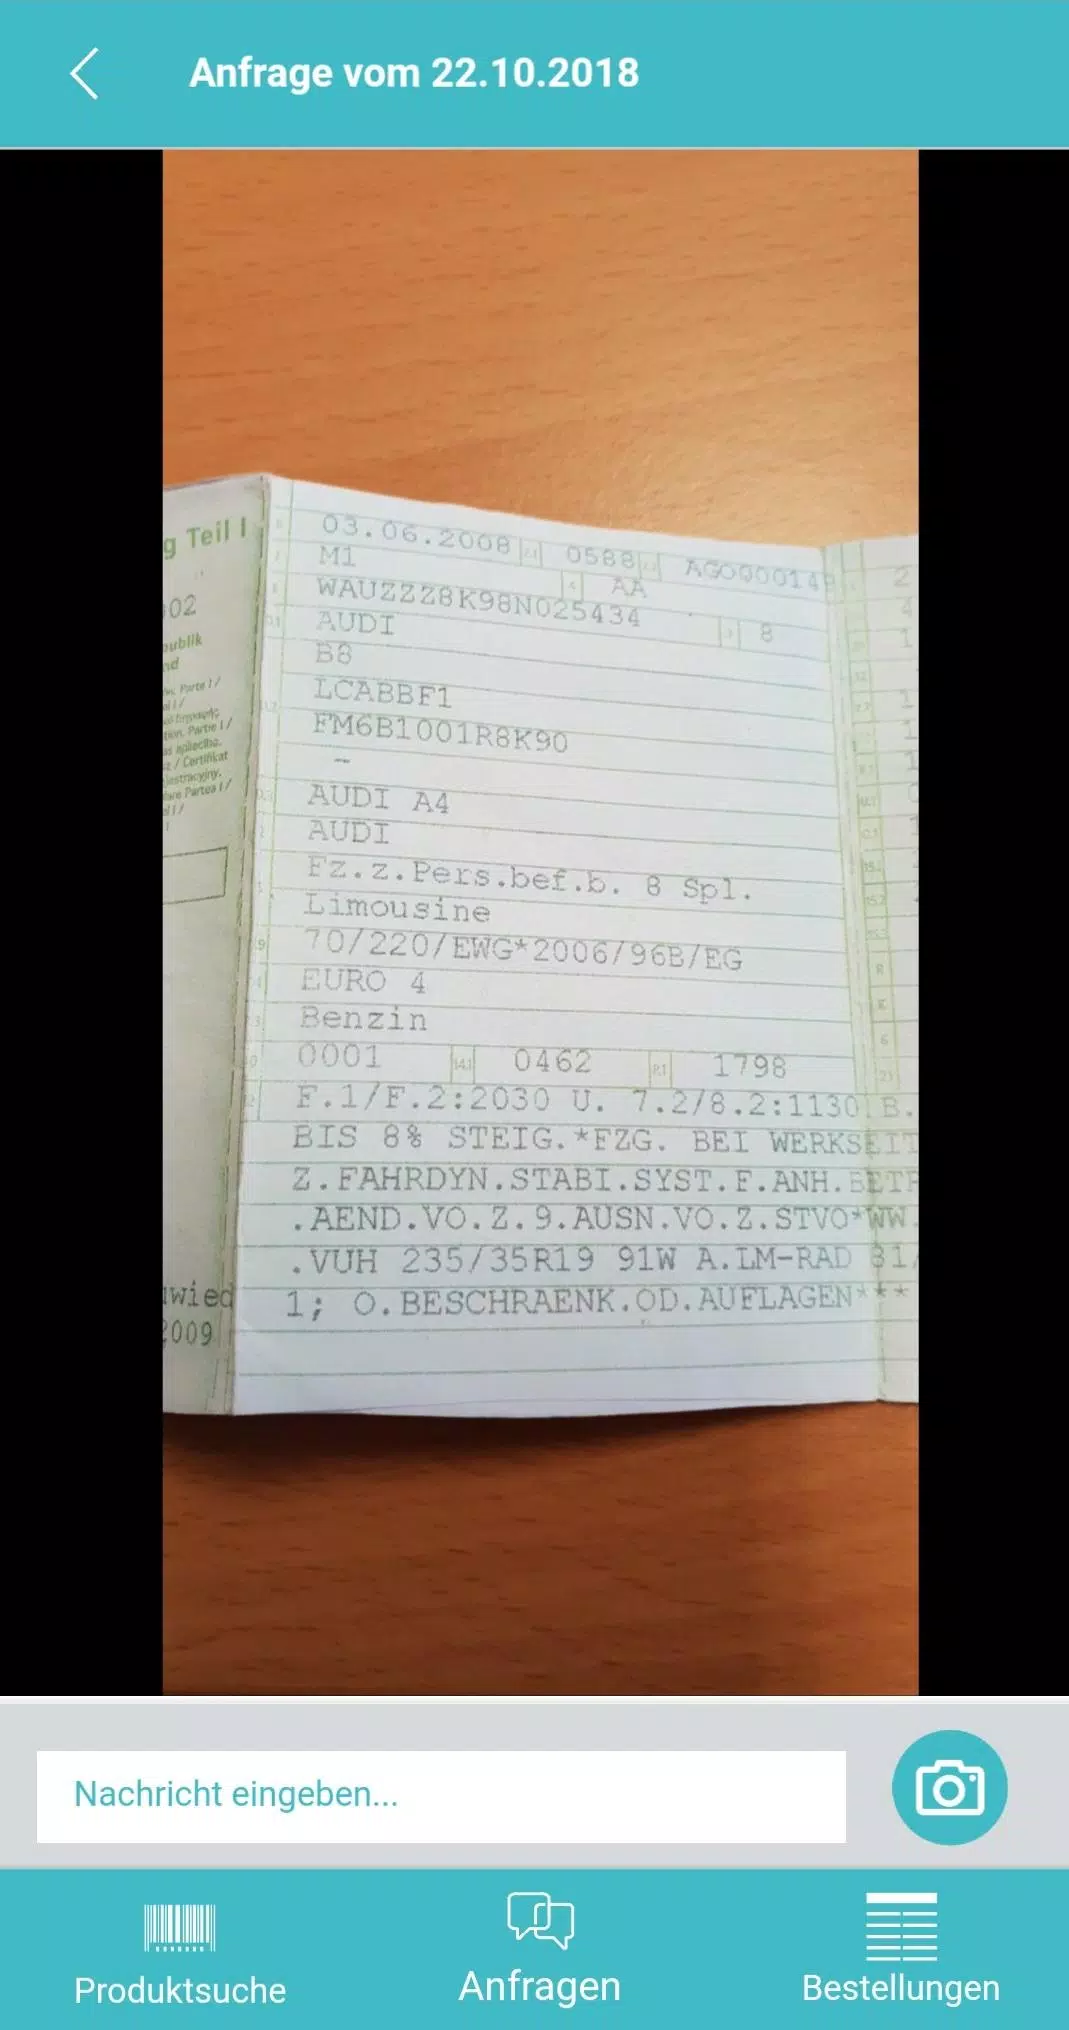 Anfrage vom 22.10.2018
g Teil I
03.06.2008 2.1 0588 2.2 AGO00014
M1 4 AA
WAUZZZ8K98N025434 3 8
AUDI
B8
LCABBF1
FM6B1001R8K90
–
AUDI A4
AUDI
Fz.z.Pers.bef.b. 8 Spl.
Limousine
70/220/EWG*2006/96B/EG
EURO 4
Benzin
0001 14.1 0462 P.1 1798
F.1/F.2:2030 U. 7.2/8.2:1130 B.
BIS 8% STEIG.*FZG. BEI WERKSEIT
Z.FAHRDYN.STABI.SYST.F.ANH.BETR
.AEND.VO.Z.9.AUSN.VO.Z.STVO*WW.
.VUH 235/35R19 91W A.LM-RAD 81/
1; O.BESCHRAENK.OD.AUFLAGEN***
02
ublik
nd
Parte I /
tion, Partie I /
/ Certifikat
Partea I /
uwied
2009
2
4
1
R
K
6
21
Nachricht eingeben...
Produktsuche
Anfragen
Bestellungen